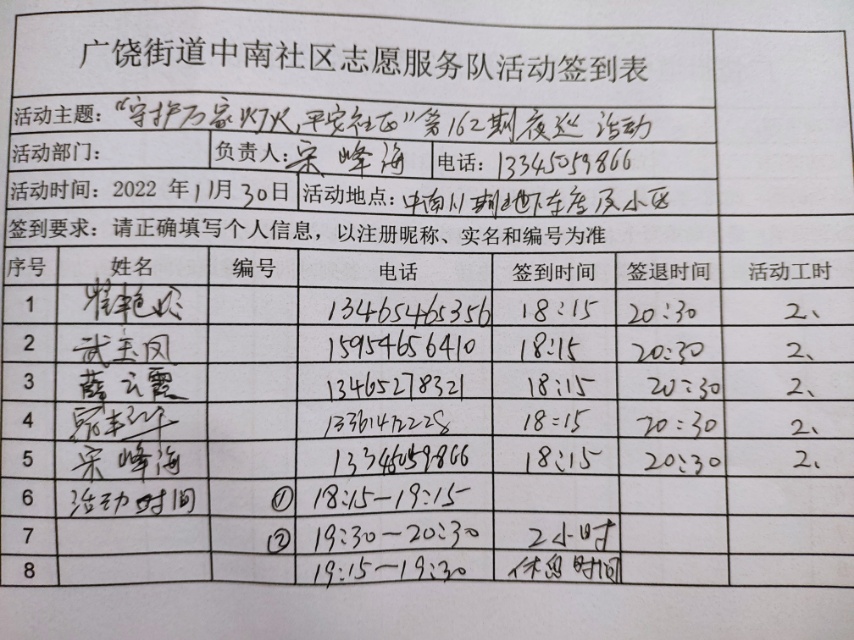 广饶街道中南社区志愿服务队活动签到表
活动主题：“守护万家灯火，平安社区”第162期夜巡 活动
活动部门： 负责人：宋峰海 电话：13345059866
活动时间：2022 年11月30日 活动地点：中南 地下车库及小区
签到要求：请正确填写个人信息，以注册昵称、实名和编号为准
序号 姓名 编号 电话 签到时间 签退时间 活动工时
1 13465465356 18:15 20:30 2、
2 武玉凤 15954656410 18:15 20:30 2、
3 薛云霞 13465278321 18:15 20:30 2、
4 18:15 20:30 2、
5 宋峰海 18:15 20:30 2、
6 活动时间 ① 18:15—19:15
7 ② 19:30—20:30 2小时
8 19:15—19:30 休息时间